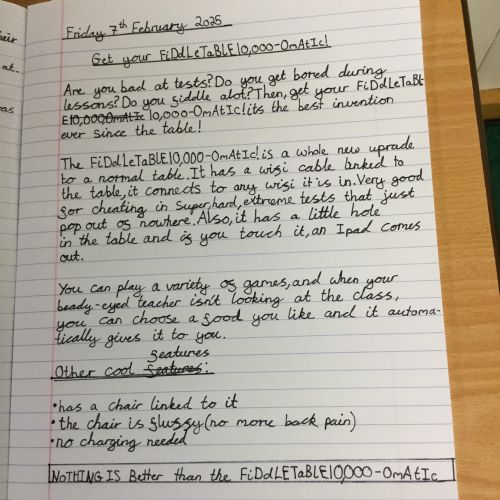 Friday 7th February 2025
Get your FiDdLeTaBlE10,000-OmAtIc!
Are you bad at tests? Do you get bored during
lessons? Do you fiddle alot? Then, get your FiDdLeTaBl
E10,000,OmAtIc 10,000-OmAtIc! its the best invention
ever since the table!
The FiDdLeTaBlE10,000-OmAtIc! is a whole new uprade
to a normal table. It has a wifi cable linked to
the table, it connects to any wifi it is in. Very good
for cheating in super, hard, extreme tests that just
pop out of nowhere. Also, it has a little hole
in the table and if you touch it, an Ipad comes
out.
You can play a variety of games, and when your
beady-eyed teacher isn't looking at the class,
you can choose a food you like and it automa-
tically gives it to you.
features
Other cool features:
•has a chair linked to it
•the chair is fluffy (no more back pain)
•no charging needed
NOTHING IS Better than the FiDdLETaBlE10,000-OmAtIc
his
at.
as